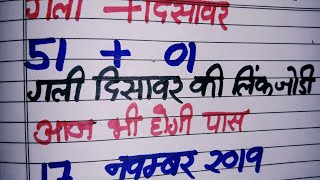 गली + दिसावर
51 + 01
गली दिसावर की लिंक जोडी
आज भी होगी पास
17 नवम्बर २०१९